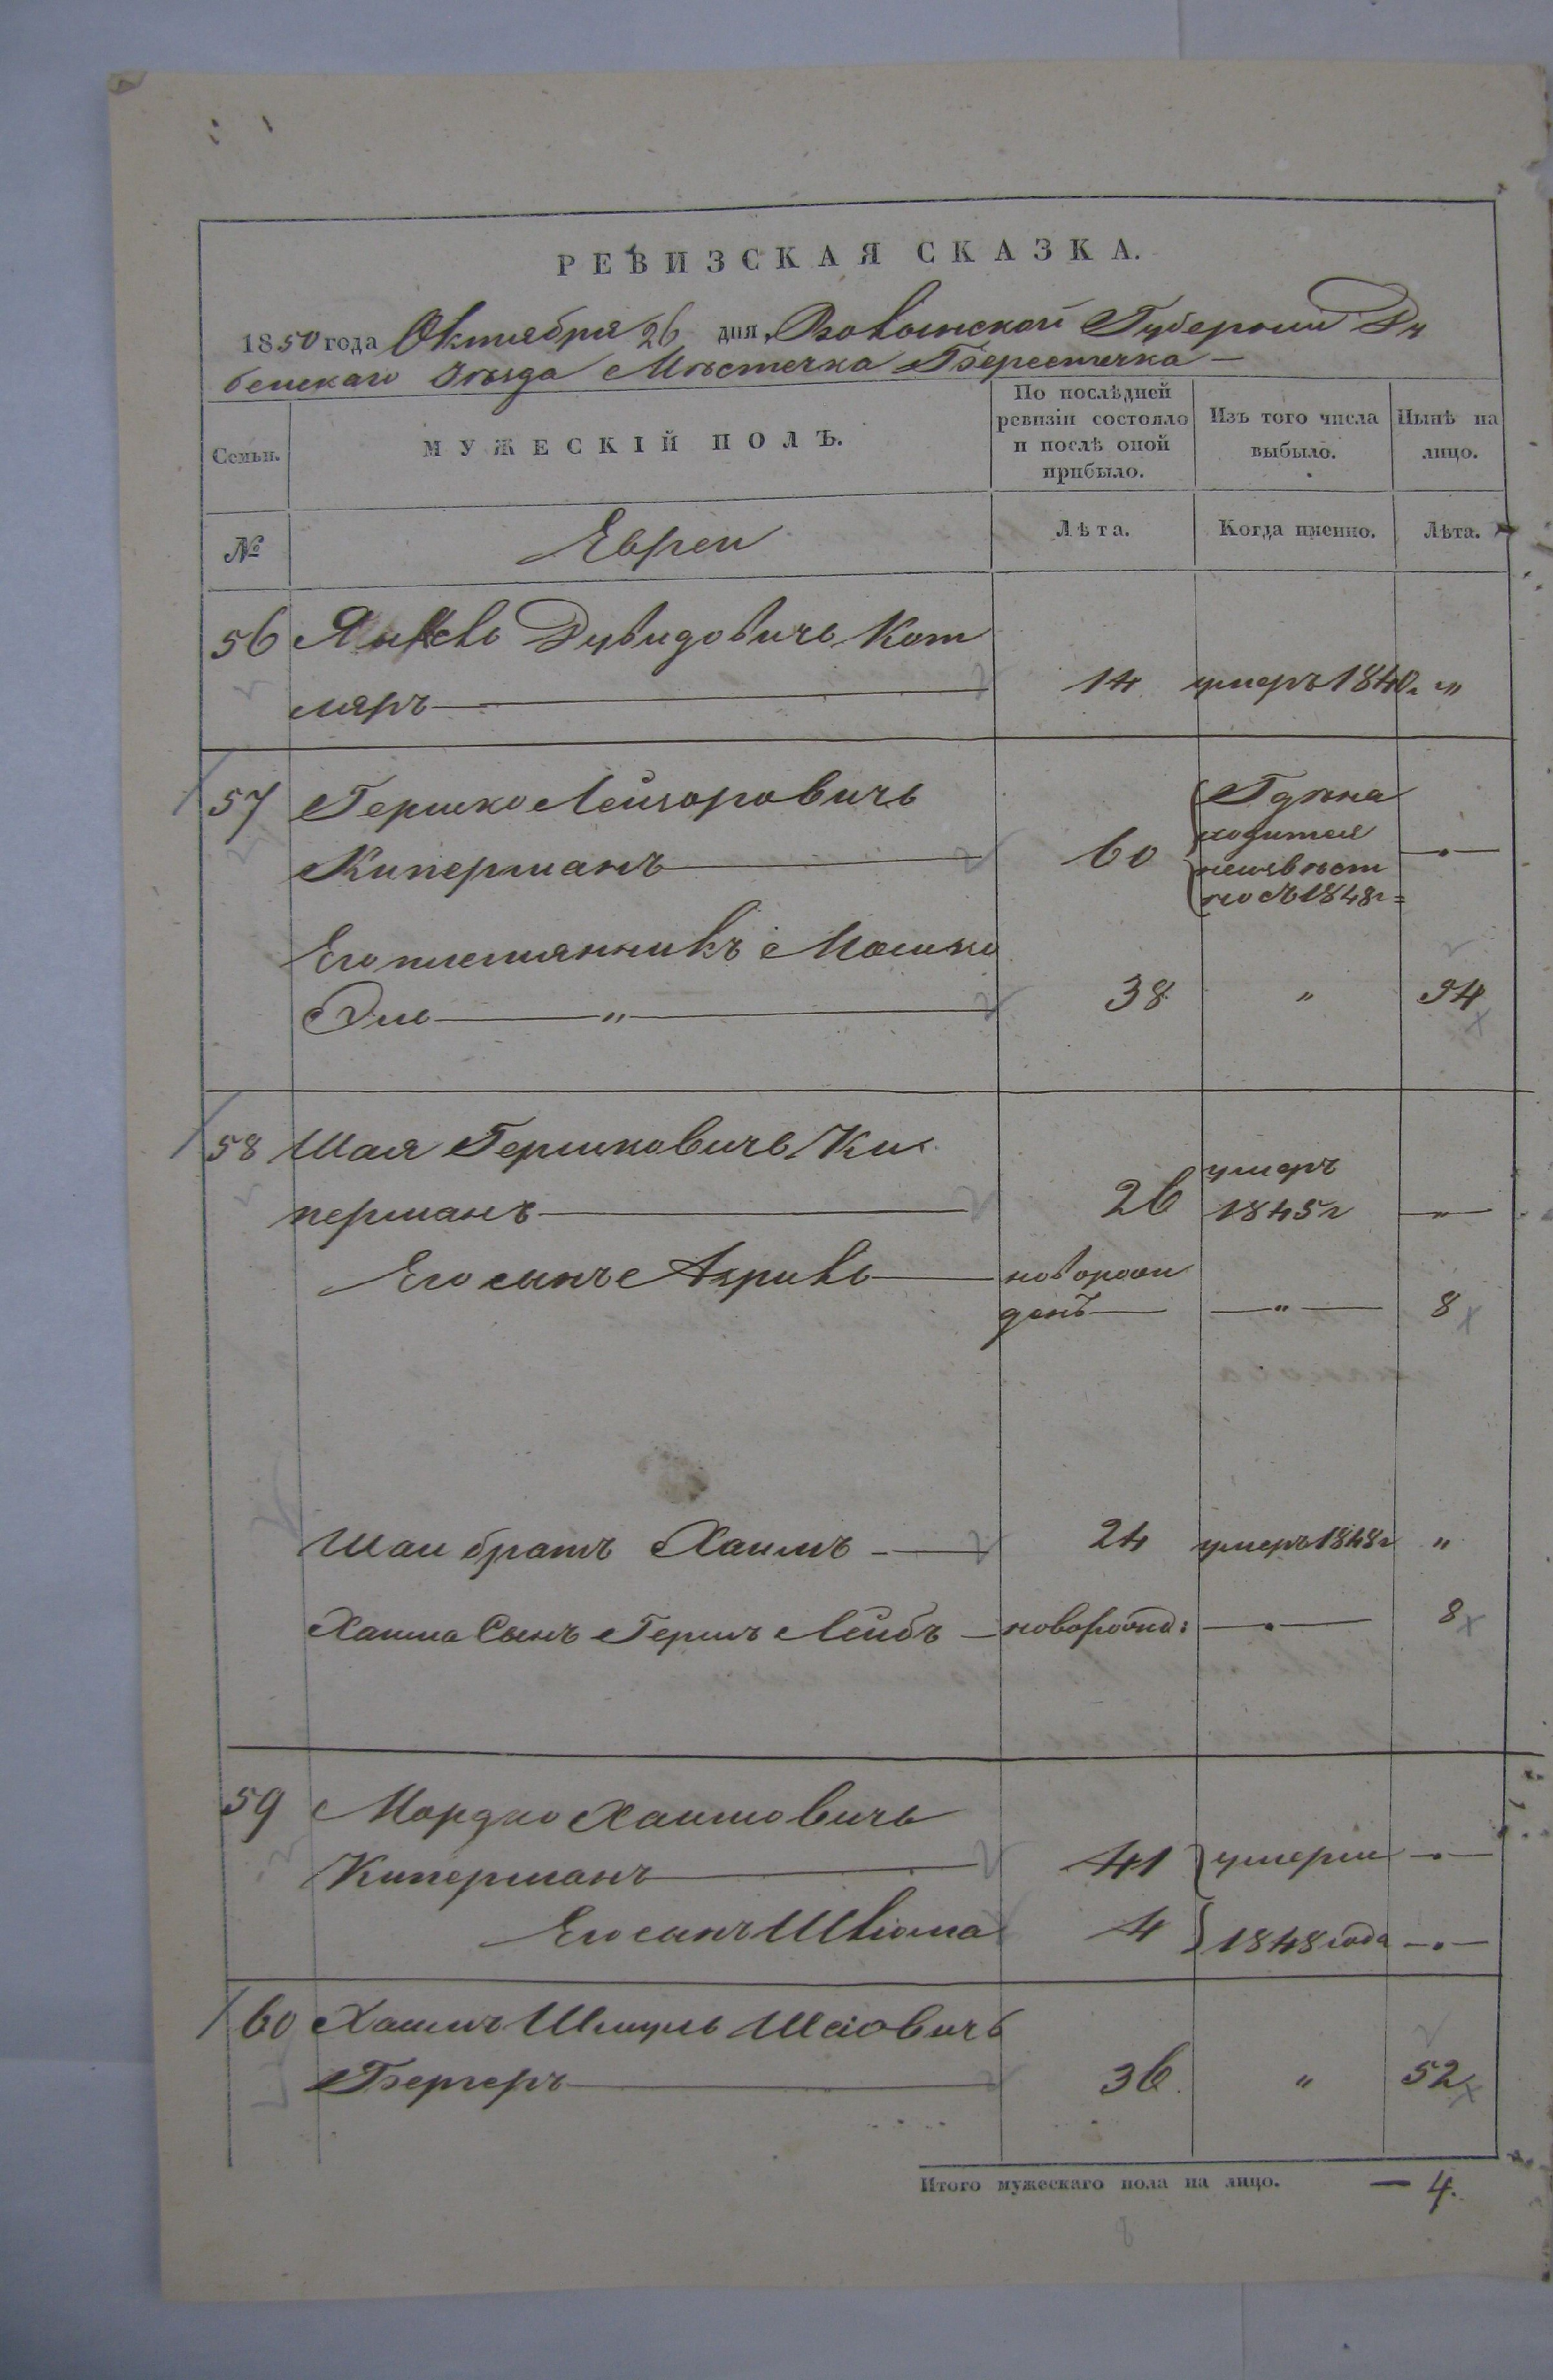 РЕВИЗСКАЯ СКАЗКА.
1850 года Октября 26 дня, Волынской Губернии Ду
бенскаго Уѣзда Мѣстечка Берестечка —
Семьи.
МУЖЕСКІЙ ПОЛЪ.
По послѣдней
ревизіи состояло
и послѣ оной
прибыло.
Изъ того числа
выбыло.
Нынѣ на
лицо.
№
Евреи
Лѣта.
Когда именно.
Лѣта.
56 Янкель Дувидовичь Кот
ляръ — 14 умеръ 1840г. "
57 Гершко Лейзоровичь
Киперманъ — 60
Гдѣ на
ходится
неизвѣст
но съ 1848г =
Его племянникъ Мошко
Эль — " — 38 " 54
58 Шая Гершковичь Ки
перманъ — 26
умеръ
1845г — " —
Его сынъ — новорож
денъ — — " — 8
Шаи братъ Хаимъ — 24 умеръ 1848г "
Хаима Сынъ Гершъ Лейбъ — новорожд: — " — 8
59 Мордко Хаимовичь
Киперманъ — 41 умерли — " —
Его сынъ Шлiома 4 1848 года — " —
60 Хаимъ Шмуль Шаiовичь
Бергеръ — 36 " 52
Итого мужескаго пола на лицо. — 4.